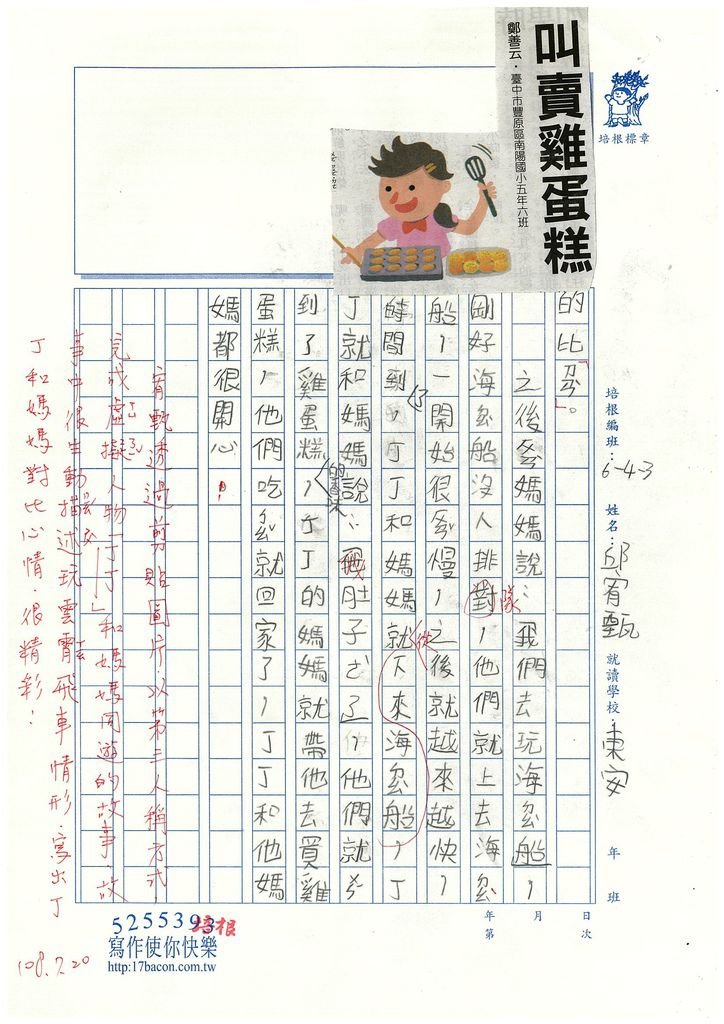 叫賣雞蛋糕
鄭善云．臺中市豐原區南陽國小五年六班
培根標章
培根編班：6-4-3
姓名：邱宥甄
就讀學校：東安
年 班
的比ㄌㄧˋ。
之後ㄊㄚ媽媽說：我們去玩海ㄉㄠˋ船，
剛好海ㄉㄠˋ船沒人排對，他們就上去海ㄉㄠˋ
隊
船，一開始很ㄏㄨㄢˇ慢，之後就越來越快，
時間到，丁丁和媽媽就下來海ㄉㄠˋ船，丁
了
從
丁就和媽媽說：我肚子ㄜˋ了，他們就ㄗㄡˇ
到了雞蛋糕，丁丁的媽媽就帶他去買雞
的香味
蛋糕，他們吃ㄨㄢˊ就回家了，丁丁和他媽
媽都很開心！
宥甄透過剪貼圖片，以第三人稱方式，
完成虛擬人物「丁丁」和媽媽同遊的故事。故
事中很生動描述玩雲霄飛車情形，寫出丁
丁和媽媽對比心情，很精彩！
108.7.20
年 月 日
第 次
5255393
培根
寫作使你快樂
http:17bacon.com.tw